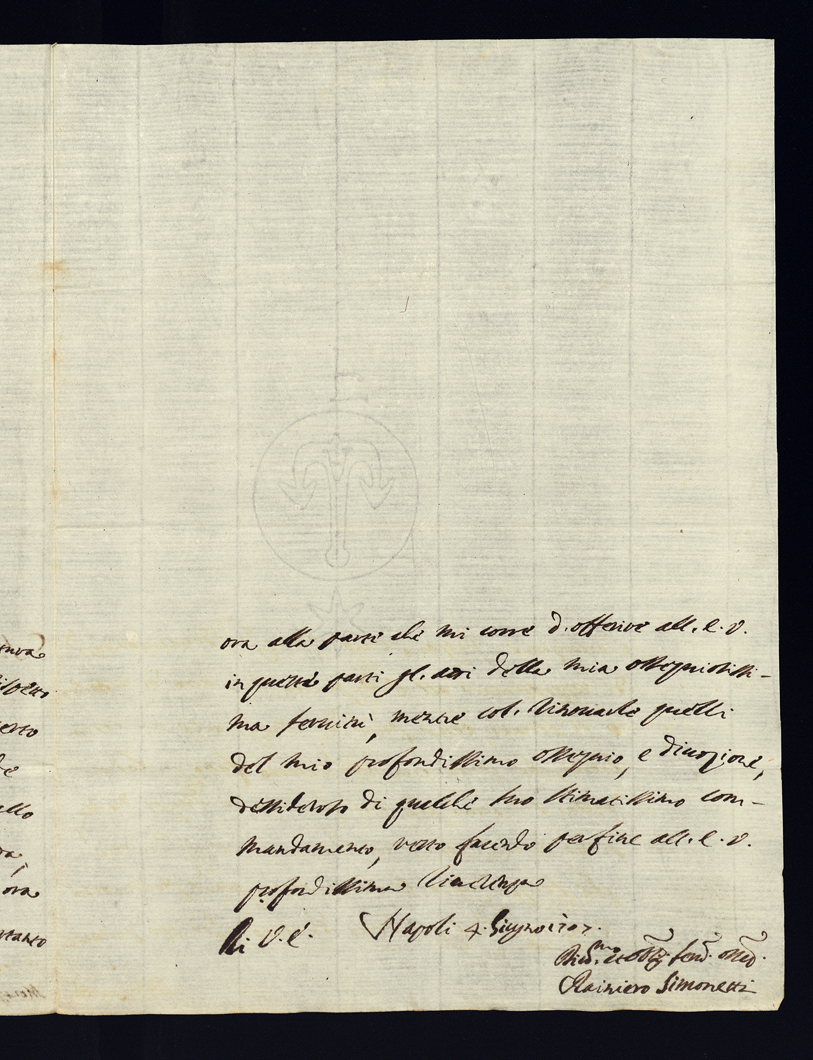 ora alla parte che mi corre d'offerire all'E.V.
in queste parti gl'atti della mia ossequiosissi-
ma servitù, mentre col rinovarle quelli
del mio profondissimo ossequio, e divozione,
dessideroso di qualche suo stimatissimo com-
mandamento, resto facendo per fine all'E.V.
profondissima riverenza
Di V.E. Napoli 4. Giugno 1707.
Rainiero Simonetti
erto
ora